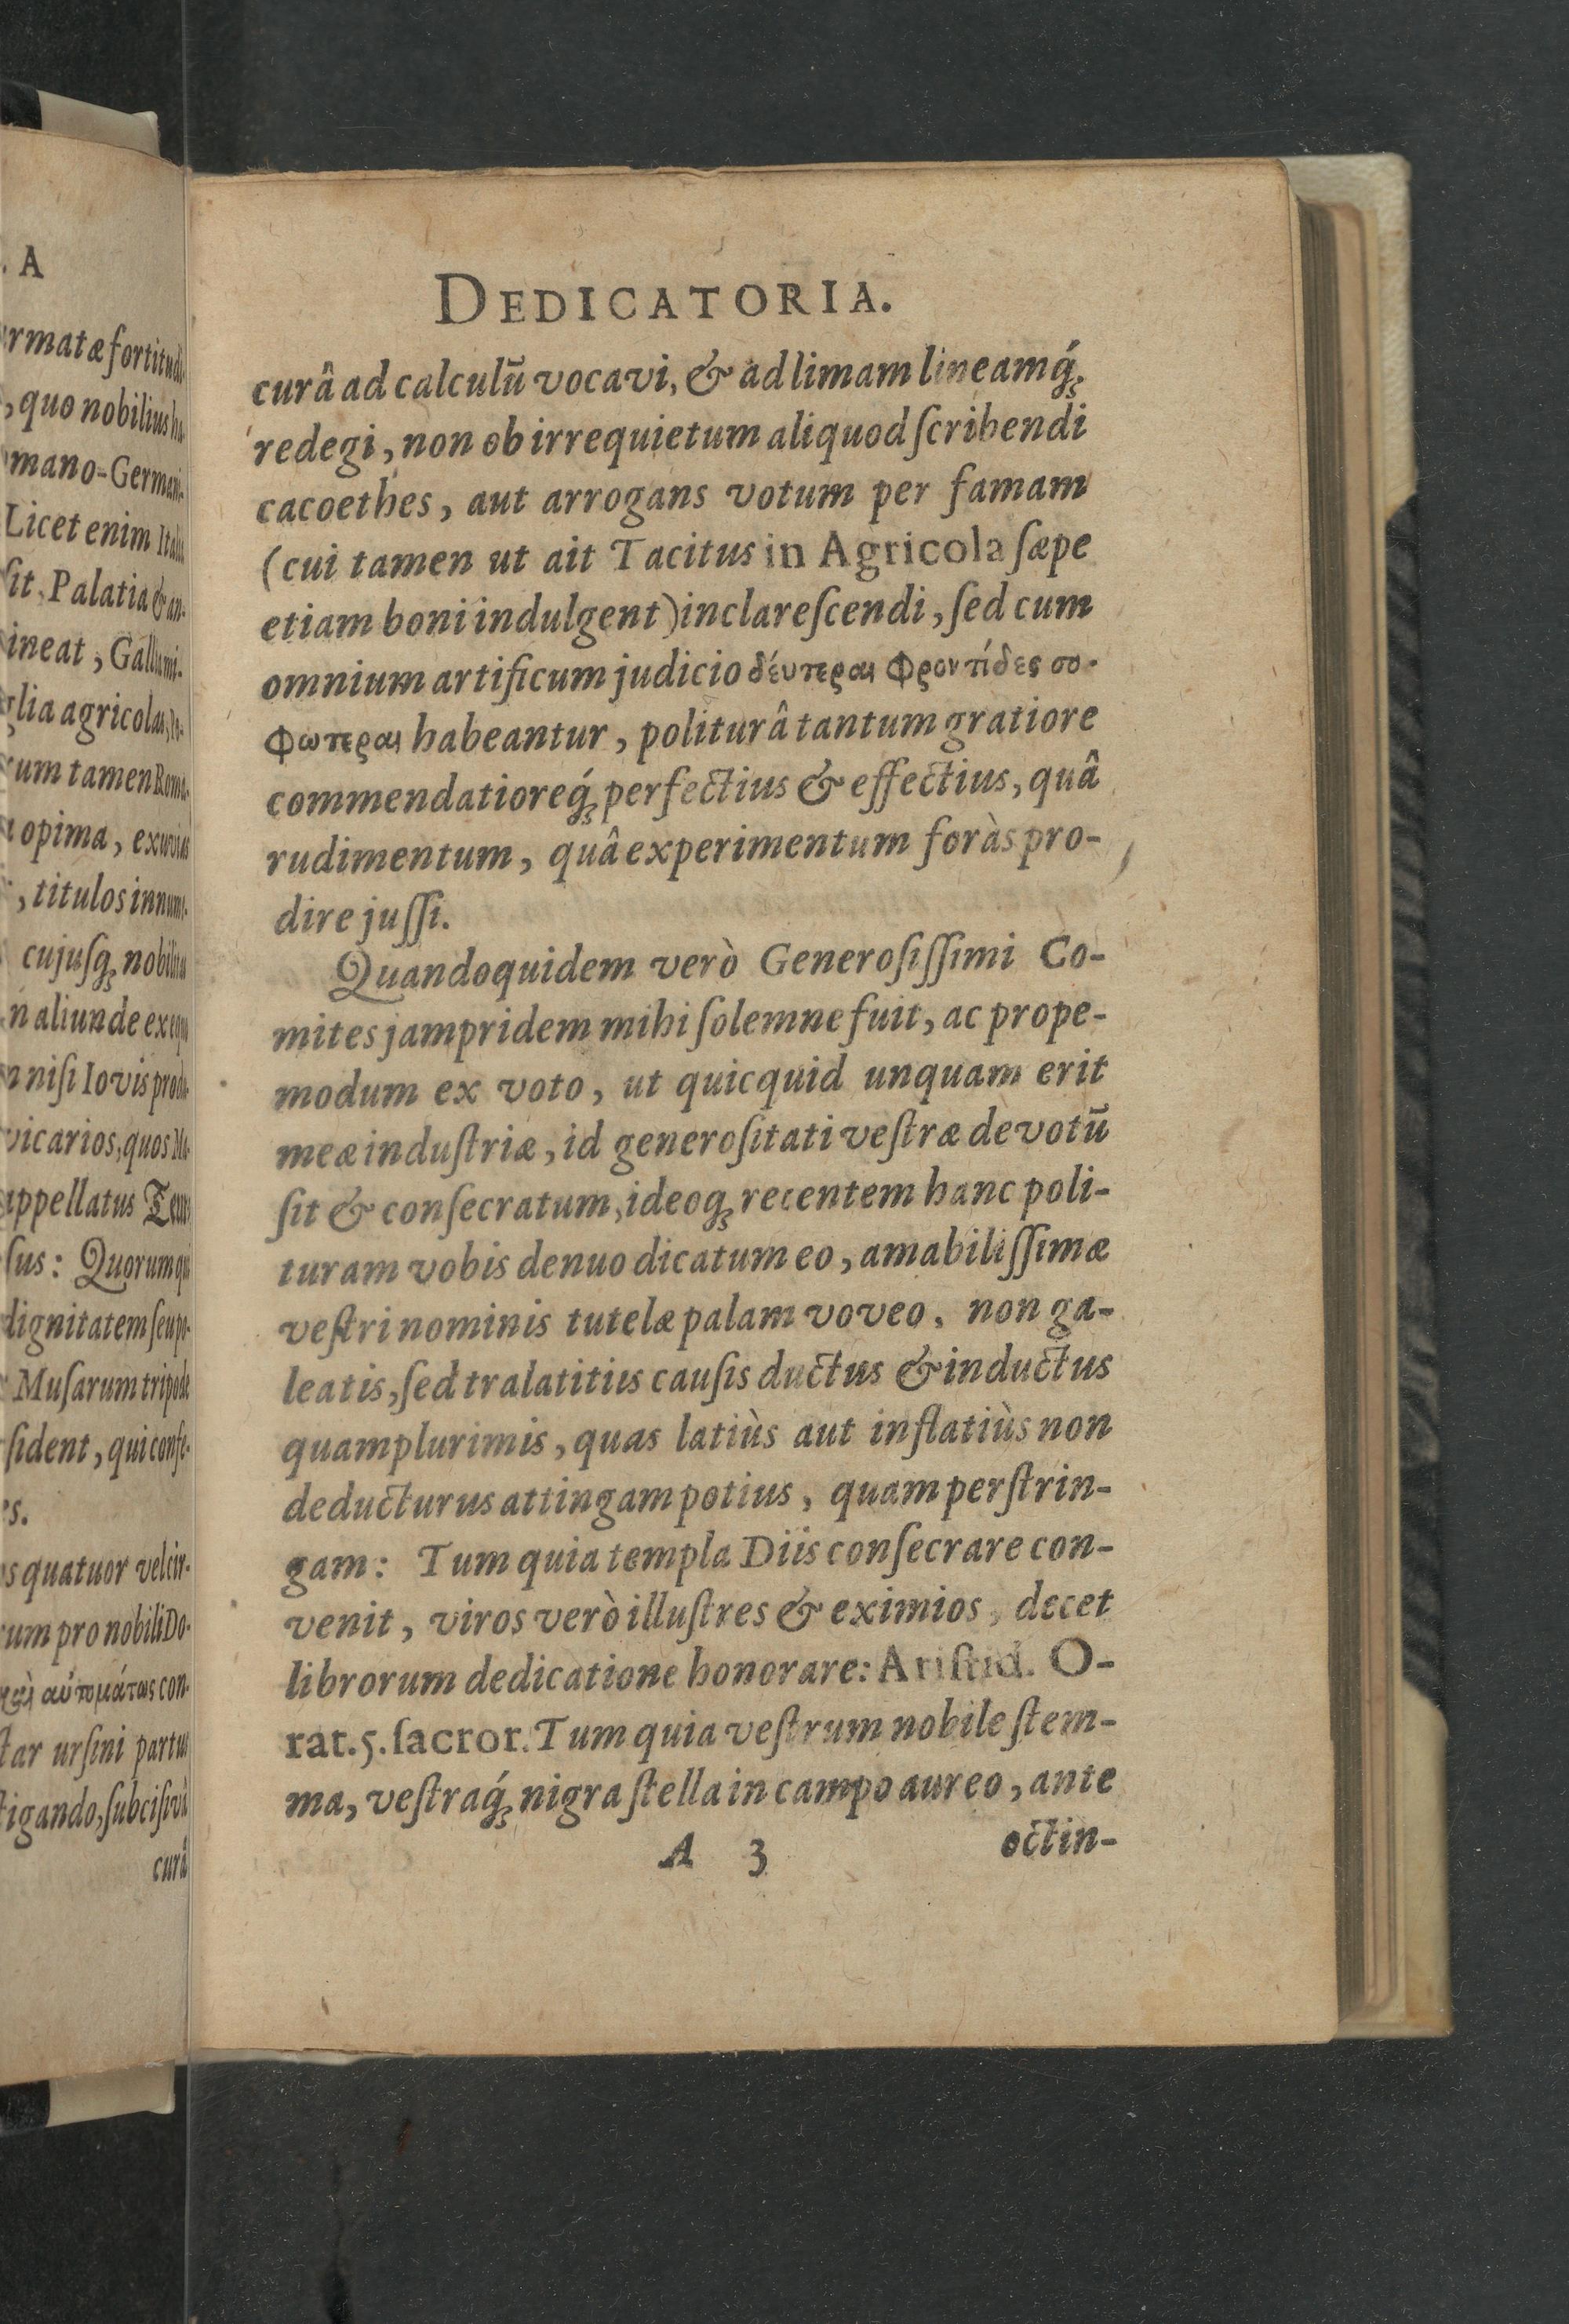 DEDICATORIA.
curâ ad calculū vocavi, & ad limam lineamq́;
redegi, non ob irrequietum aliquod ſcribendi
cacoethes, aut arrogans votum per famam
(cui tamen ut ait Tacitus in Agricola ſæpe
etiam boni indulgent) inclareſcendi, ſed cum
omnium artificum judicio δέυτεραι φροντίδες σο-
φωτεραι habeantur, politurâ tantum gratiore
commendatioreq́; perfectius & effectius, quâ
rudimentum, quâ experimentum foràs pro-
dire juſſi.
Quandoquidem verò Generoſiſſimi Co-
mites jampridem mihi ſolemne fuit, ac prope-
modum ex voto, ut quicquid unquam erit
meæ induſtriæ, id generoſitati veſtræ devotū
ſit & conſecratum, ideoq; recentem hanc poli-
turam vobis denuo dicatum eo, amabiliſſimæ
veſtri nominis tutelæ palam voveo, non ga-
leatis, ſed tralatitiis cauſis ductus & inductus
quamplurimis, quas latiùs aut inflatiùs non
deducturus attingam potius, quam perſtrin-
gam: Tum quia templa Diis conſecrare con-
venit, viros verò illuſtres & eximios, decet
librorum dedicatione honorare: Ariſtid. O-
rat. 5. ſacror. Tum quia veſtrum nobile ſtem-
ma, veſtraq́; nigra ſtella in campo aureo, ante
A 3 octin-
. A
rmatæ fortitudi-
, quo nobilius ha-
mano-Germani-
Licet enim Italia
ſit, Palatia & an-
ineat, Galli mi-
glia agricolas, Po-
um tamen Roma-
opima, exuvias
, titulos innume-
cujuſq; nobilitas
n aliunde ex equo
n niſi Iovis prode-
vicarios, quos
appellatus
ſus: Quorum qui
dignitatem ſeu po-
Muſarum tripode
ſident, qui conſe-
es.
os quatuor vel cir-
um pro nobili Do-
αὐτομάτως con-
tar urſini partus
tigando, ſubciſivâ
curâ